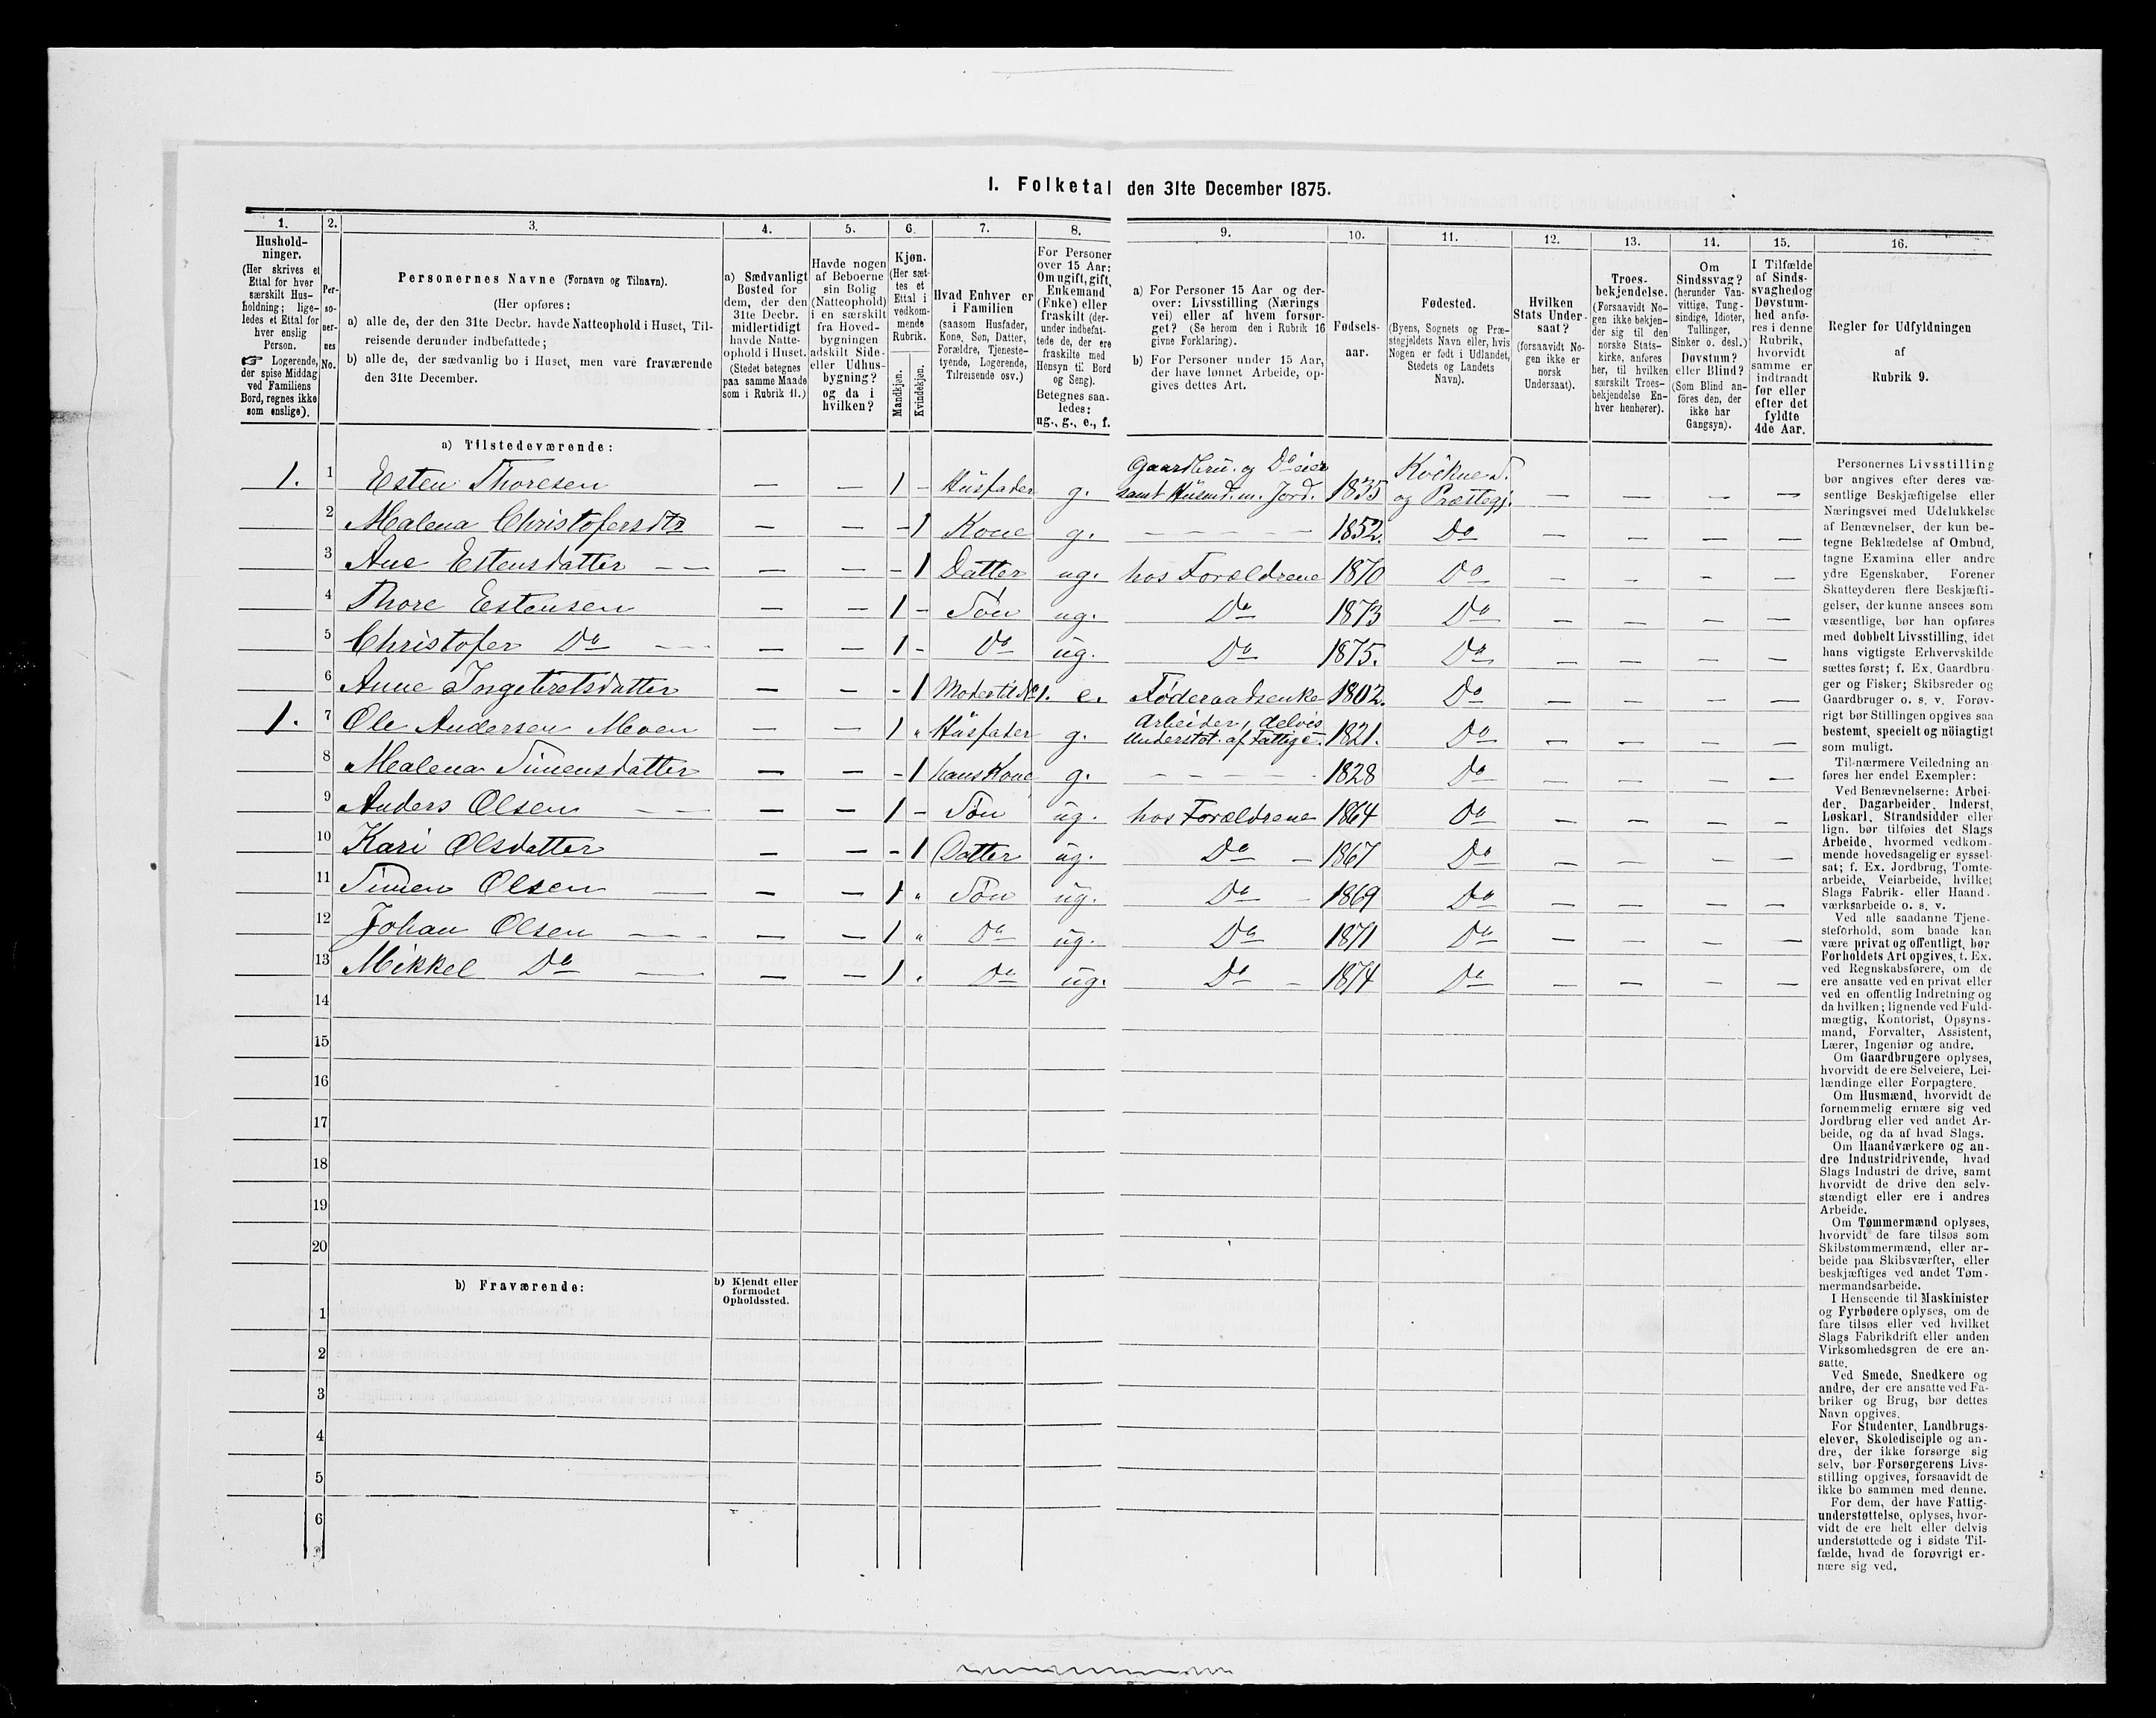 I. Folketal den 31te December 1875.
1. 2. 3. 4. 5. 6. 7. 8. 9. 10. 11. 12. 13. 14. 15. 16.
Hushold-
ninger.
(Her skrives et
Ettal for hver
særskilt Hus-
holdning; lige-
ledes et Ettal for
hver enslig
Person.
☞ Logerende,
der spise Middag
ved Familiens
Bord, regnes ikke
som enslige).
Per-
so-
ner-
nes
No.
Personernes Navne (Fornavn og Tilnavn).
(Her opføres:
a) alle de, der den 31te Decbr. havde Natteophold i Huset, Til-
reisende derunder indbefattede;
b) alle de, der sædvanlig bo i Huset, men vare fraværende
den 31te December.
a) Sædvanligt
Bosted for
dem, der den
31te Decbr.
midlertidigt
havde Natte-
ophold i Huset.
(Stedet betegnes
paa samme Maade
som i Rubrik 11.)
Havde nogen
af Beboerne
sin Bolig
(Natteophold)
i en særskilt
fra Hoved-
bygningen
adskilt Side-
eller Udhus-
bygning?
og da i
hvilken?
Kjøn.
(Her sæt-
tes et
Ettal i
vedkom-
mende
Rubrik.
Mandkjøn.
Kvindekjøn.
Hvad Enhver er
i Familien
(saasom Husfader,
Kone, Søn, Datter,
Forældre, Tjeneste-
tyende, Logerende,
Tilreisende osv.)
For Personer
over 15 Aar:
Om ugift, gift,
Enkemand
(Enke) eller
fraskilt (der-
under indbefat-
tede de, der ere
fraskilte med
Hensyn til Bord
og Seng).
Betegnes saa-
ledes:
ug., g., e., f.
a) For Personer 15 Aar og der-
over: Livsstilling (Nærings
vei) eller af hvem forsør-
get? (Se herom den i Rubrik 16
givne Forklaring).
b) For Personer under 15 Aar,
der have lønnet Arbeide, op-
gives dettes Art.
Fødsels-
aar.
Fødested.
(Byens, Sognets og Præ-
stegjeldets Navn eller, hvis
Nogen er født i Udlandet,
Stedets og Landets
Navn).
Hvilken
Stats Under-
saat?
(forsaavidt No-
gen ikke er
norsk
Undersaat).
Troes-
bekjendelse.
(Forsaavidt No-
gen ikke bekjen-
der sig til den
norske Stats-
kirke, anføres
her, til hvilken
særskilt Troes-
bekjendelse En-
hver henhører).
Om
Sindssvag?
(herunder Van-
vittige, Tung-
sindige, Idioter,
Tullinger,
Sinker o. desl.)
Døvstum?
eller Blind?
(Som Blind an-
føres den, der
ikke har
Gangsyn).
I Tilfælde
af Sinds-
svaghed og
Døvstum-
hed anfø-
res i denne
Rubrik,
hvorvidt
samme er
indtraadt
før eller
efter det
fyldte
4de Aar.
Regler for Udfyldningen
af
Rubrik 9.
a) Tilstedeværende:
1. 1 Esten Thoresen — — 1 - Husfader g. Gaardbru. og Do eier samt Husmd. m. Jord. 1835 Kvikne S. og Præstegj. — — — —
2 Malena Christofersdtr — — - 1 Kone g. — 1852. Do — — — —
3 Ane Estensdatter — — - 1 Datter ug. hos Forældrene 1870 Do — — — —
4 Thore Estensen — — 1 - Søn ug. Do 1873 Do — — — —
5 Christofer Do — — 1 - Do ug. Do 1875. Do — — — —
6 Anne Ingebretsdatter — — - 1 Moder til No 1. e. Føderaadsenke 1802. Do — — — —
1. 7 Ole Andersen Moen — — 1 " Husfader g. Arbeider, delvis Understøt. af Fattigv. 1821. Do — — — —
8 Malena Simensdatter — — - 1 hans Kone g. — 1828 Do — — — —
9 Anders Olsen — — 1 - Søn ug. hos Forældrene 1864 Do — — — —
10 Kari Olsdatter — — - 1 Datter ug. Do 1867 Do — — — —
11 Simen Olsen — — 1 " Søn ug. Do 1869 Do — — — —
12 Johan Olsen — — 1 " Do ug. Do 1871 Do — — — —
13 Mikkel Do — — 1 " Do ug. Do 1874 Do — — — —
14
15
16
17
18
19
20
b) Fraværende:
b) Kjendt eller
formodet
Opholdssted.
1
2
3
4
5
6
Personernes Livsstilling
bør angives efter deres væ-
sentlige Beskjæftigelse eller
Næringsvei med Udelukkelse
af Benævnelser, der kun be-
tegne Beklædelse af Ombud,
tagne Examina eller andre
ydre Egenskaber. Forener
Skatteyderen flere Beskjæfti-
gelser, der kunne ansees som
væsentlige, bør han opføres
med dobbelt Livsstilling, idet
hans vigtigste Erhvervskilde
sættes først; f. Ex. Gaardbru-
ger og Fisker; Skibsreder og
Gaardbruger o. s. v. Forøv-
rigt bør Stillingen opgives saa
bestemt, specielt og nöiagtigt
som muligt.
Til nærmere Veiledning an
føres her endel Exempler:
Ved Benævnelserne: Arbei-
der, Dagarbeider, Inderst,
Løskarl, Strandsidder eller
lign. bør tilføies det Slags
Arbeide, hvormed vedkom-
mende hovedsagelig er syssel-
sat; f. Ex. Jordbrug, Tomte-
arbeide, Veiarbeide, hvilket
Slags Fabrik- eller Haand-
værksarbeide o. s. v.
Ved alle saadanne Tjene-
steforhold, som baade kan
være privat og offentligt, bør
Forholdets Art opgives, f. Ex.
ved Regnskabsførere, om de
ere ansatte ved en privat eller
ved en offentlig Indretning og
da hvilken; lignende ved Fuld-
mægtig, Kontorist, Opsyns-
mand, Forvalter, Assistent,
Lærer, Ingeniør og andre.
Om Gaardbrugere oplyses,
hvorvidt de ere Selveiere, Lei-
lændinge eller Forpagtere.
Om Husmænd, hvorvidt de
fornemmelig ernære sig ved
Jordbrug eller ved andet Ar-
beide, og da af hvad Slags.
Om Haandværkere og an-
dre Industridrivende, hvad
Slags Industri de drive, samt
hvorvidt de drive den selv-
stændigt eller ere i andres
Arbeide.
Om Tømmermænd oplyses,
hvorvidt de fare tilsøs som
Skibstømmermænd, eller ar-
beide paa Skibsværfter, eller
beskjæftiges ved andet Tøm-
mermandsarbeide.
I Henseende til Maskinister
og Fyrbødere oplyses, om de
fare tilsøs eller ved hvilket
Slags Fabrikdrift eller anden
Virksomhedsgren de ere an-
satte.
Ved Smede, Snedkere og
andre, der ere ansatte ved Fa-
briker og Brug, bør dettes
Navn opgives.
For Studenter, Landbrugs-
elever, Skoledisciple og an-
dre, der ikke forsørge sig
selv, bør Forsørgerens Livs-
stilling opgives, forsaavidt de
ikke bo sammen med denne.
For dem, der have Fattig-
understøttelse, oplyses, hvor-
vidt de ere helt eller delvis
understøttede og i sidste Til-
fælde, hvad de forøvrigt er-
nære sig ved.